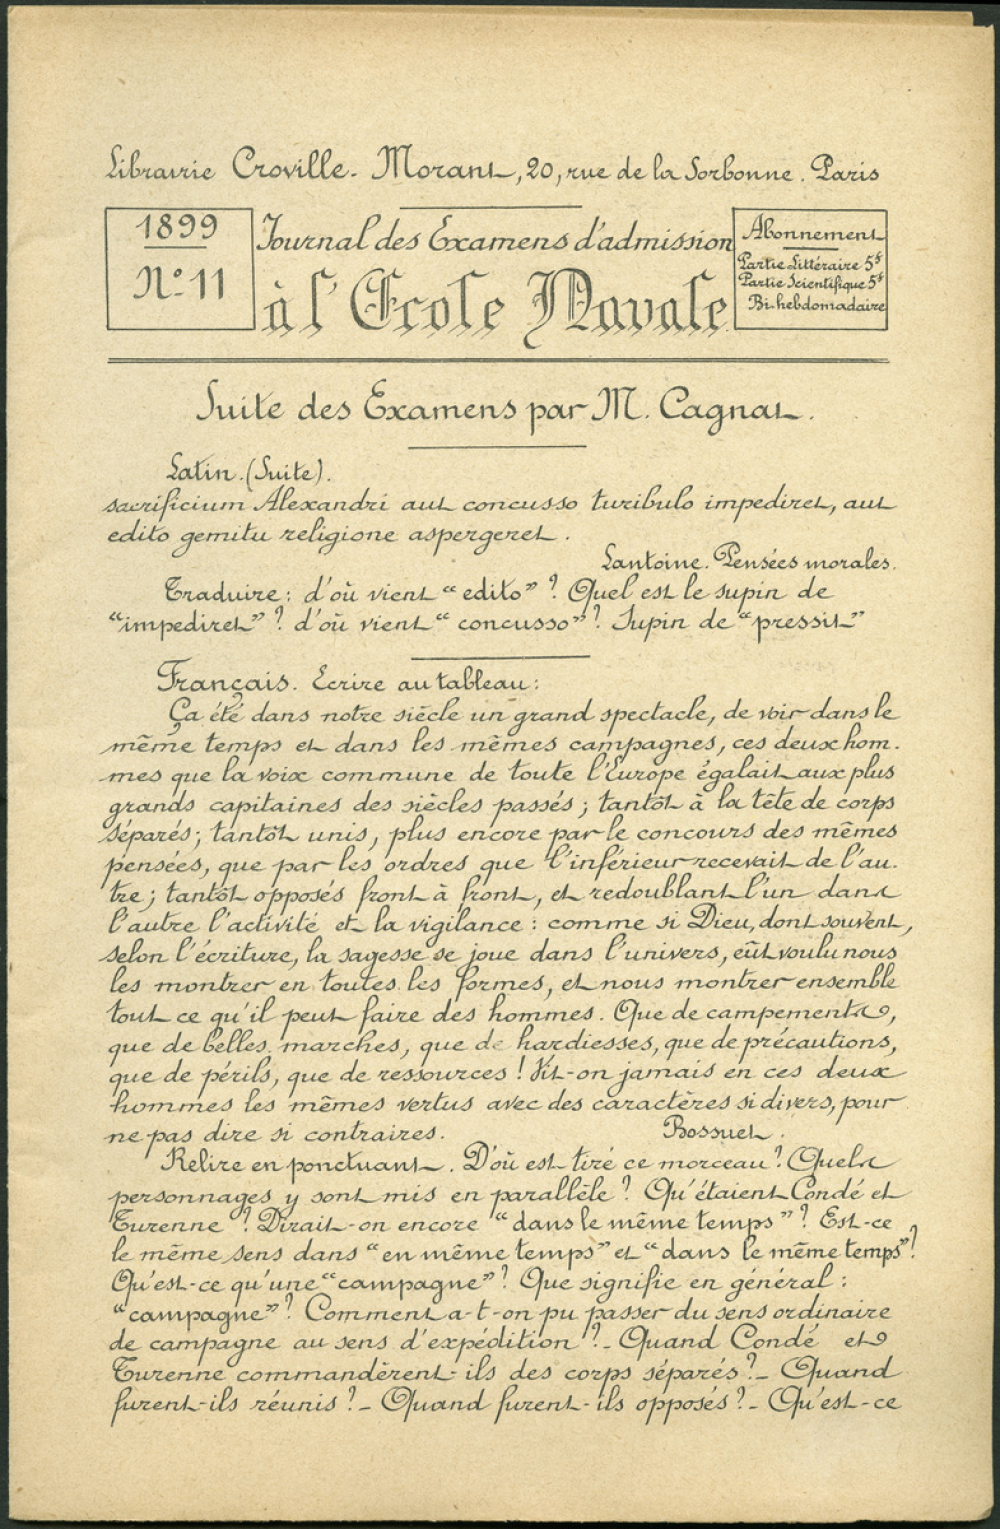 Librairie Croville-Morant, 20, rue de la Sorbonne. Paris
1899
N° 11
Journal des Examens d'admission
à l'Ecole Navale
Abonnement
Partie Littéraire 5f
Partie Scientifique 5f
Bi-hebdomadaire
Suite des Examens par M. Cagnat.
Latin. (Suite).
sacrificium Alexandri aut concusso turibulo impediret, aut
edito gemitu religione aspergeret.
Lantoine. Pensées morales.
Traduire: d'où vient "edito"? Quel est le supin de
"impediret"? d'où vient "concusso"? Supin de "pressit"
Français. Ecrire au tableau:
Ça été dans notre siècle un grand spectacle, de voir dans le
même temps et dans les mêmes campagnes, ces deux hom-
mes que la voix commune de toute l'Europe égalait aux plus
grands capitaines des siècles passés; tantôt à la tête de corps
séparés; tantôt unis, plus encore par le concours des mêmes
pensées, que par les ordres que l'inférieur recevait de l'au-
tre; tantôt opposés front à front, et redoublant l'un dans
l'autre l'activité et la vigilance: comme si Dieu, dont souvent,
selon l'écriture, la sagesse se joue dans l'univers, eût voulu nous
les montrer en toutes les formes, et nous montrer ensemble
tout ce qu'il peut faire des hommes. Que de campements,
que de belles marches, que de hardiesses, que de précautions,
que de périls, que de ressources! Vit-on jamais en ces deux
hommes les mêmes vertus avec des caractères si divers, pour
ne pas dire si contraires.
Bossuet.
Relire en ponctuant. D'où est tiré ce morceau? Quels
personnages y sont mis en parallèle? Qu'étaient Condé et
Turenne? Dirait-on encore "dans le même temps"? Est-ce
le même sens dans "en même temps" et "dans le même temps"?
Qu'est-ce qu'une "campagne"? Que signifie en général:
"campagne"? Comment a-t-on pu passer du sens ordinaire
de campagne au sens d'expédition? - Quand Condé et
Turenne commandèrent-ils des corps séparés? - Quand
furent-ils réunis? - Quand furent-ils opposés? - Qu'est-ce